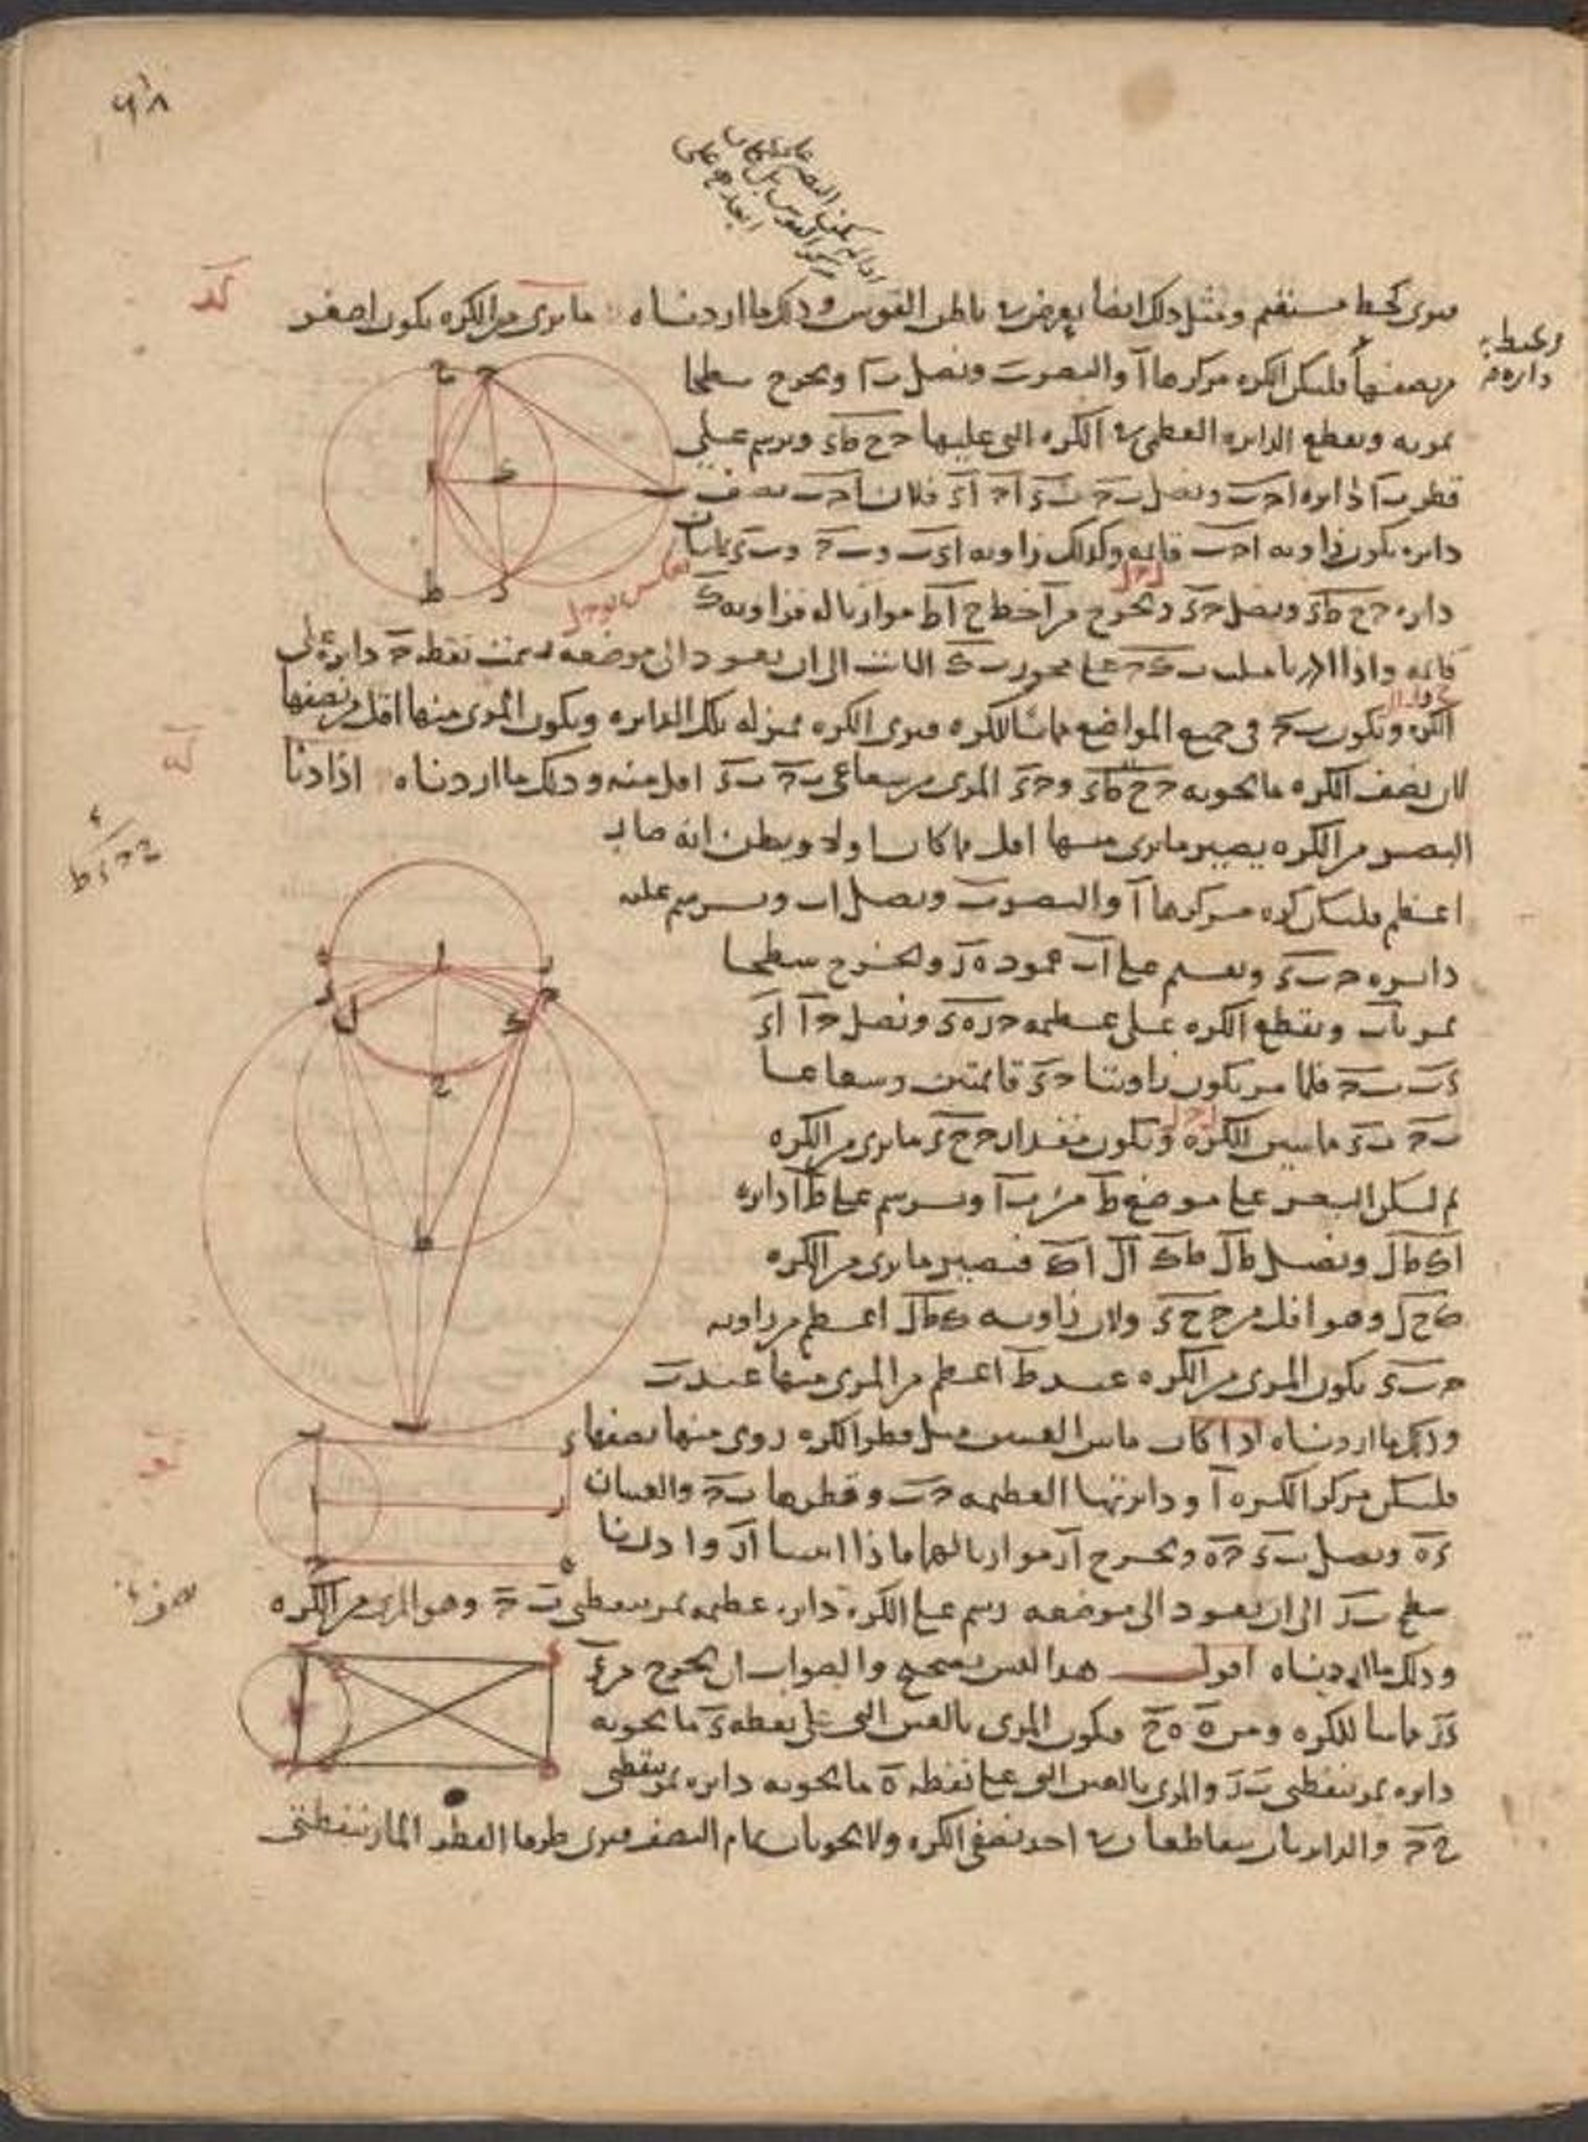 فيرى كخط مستقيم ومثل ذلك ايضا يعرض في باطن القوس وذلك ما اردناه ما يرى من الكره يكون اصغر
من نصفها فليكن الكره مركزها آ والبصر ب ونصل ب آ ونخرج سطحا
يمر به ويقطع الدايره العظمى في الكره التى عليها ح ح ط د ونرسم على
قطر ب آ دايره ا ح ب ونصل ب ح ب د ا ح ا د فلان ا ح ب نصف
دايره يكون زاويه ا ح ب قايمه وكذلك زاويه ا د ب و ب ح و ب د يماسان
دايره ح ح ط د ونصل ح د ونخرج من آ خط ح ا ط موازيا له فزاويه ك
قايمه واذا ادرنا مثلث ب ك ح على محور ب ك الثابت الى ان يعود الى موضعه رسمت نقطه ح دايره فى
الكره ويكون ب ح فى جميع المواضع مماسا للكره فيرى الكره بمنزله تلك الدايره ويكون المرى منها اقل من نصفها
لان نصف الكره ما يحويه ح ح ط د و ح د المرى من شعاعى ب ح ب د اقل منه وذلك ما اردناه اذا دنا
البصر من الكره يصير ما يرى منها اقل مما كان اولا ويظن انه صار
اعظم فليكن كره مركزها آ والبصر ب ونصل ا ب ونرسم عليه
دايره ح ب د ونقيم على آ ب عمود ه ز ولنخرج سطحا
يمر با ب ويقطع الكره على عظيمه ح ز ه د ونصل ح آ ا د
د ب ب ح فلما مر يكون زاويتا ح د قايمتين وشعاعا
ب ح ب د مماسين للكره ويكون مقدار ح ح د ما يرى من الكره
ثم ليكن البصر على موضع ط من ب آ ونرسم على ط آ دايره
ا ك ط ل ونصل ط ل ط ك ا ل ا ك فيصير ما يرى من الكره
ك ح ل وهو اقل من ح ح د ولان زاويه ك ط ل اعظم من زاويه
ح ب د يكون المرى من الكره عند ط اعظم من المرى منها عند ب
وذلك ما اردناه اذا كان ما بين العينين مثل قطر الكره روى منها نصفها
فليكن مركز الكره آ ودايرتها العظيمه ح ب وقطرها ب ح والعينان
د ه ونصل ب د ح ه ونخرج آ ز موازيا لهما فاذا اثبتنا ا ز وادرنا
سطح ب ز الى ان يعود الى موضعه رسم على الكره دايره عظيمه تمر بنقطتى ب ح وهو المرى من الكره
وذلك ما اردناه اقول هذا ليس بصحيح والصواب ان يخرج من د
د ز مماسا للكره ومن ه ه ح فيكون المرى بالعين التى على نقطه د ما يحويه
دايره تمر بنقطتى ب ز والمرى بالعين التى على نقطه ه ما يحويه دايره تمر بنقطتى
ح ح والدايرتان يتقاطعان في احد نصفى الكره ولا يحويان تمام النصف فيرى طرفا القطر المار بنقطتى